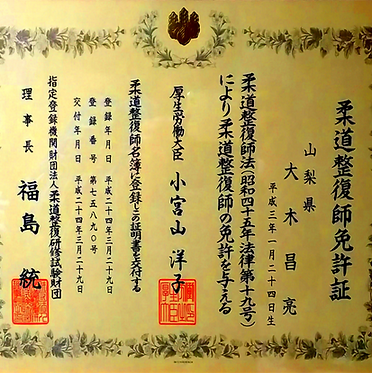 柔道整復師免許証
山梨県
大木昌亮
平成三年一月二十四日生
柔道整復師法(昭和四十五年法律第十九号)
により柔道整復師の免許を与える
厚生労働大臣 小宮山洋子
柔道整復師名簿に登録したので証明書を交付する
登録年月日 平成二十四年三月二十九日
登録番号 第七五八九〇号
交付年月日 平成二十四年三月二十九日
指定登録機関財団法人柔道整復研修試験財団
理事長 福島統